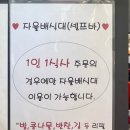 ♥ 자율배식대(셀프바) ♥
1인 1식사 주문의
경우에만 자율배식대
이용이 가능합니다.
"밥, 콩나물, 반찬, 김 두 리필